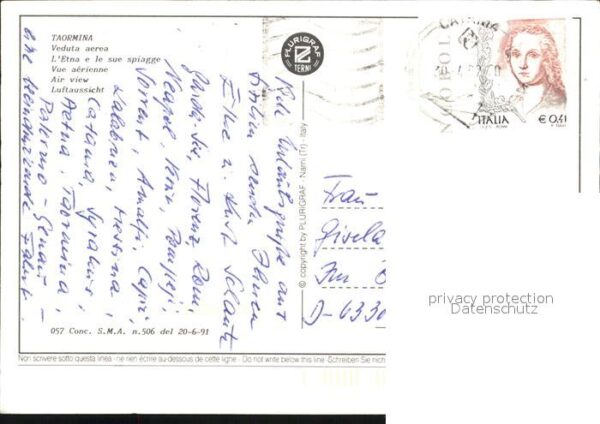 TAORMINA
Veduta aerea
L'Etna e le sue spiagge
Vue aérienne
Air view
Luftaussicht
PLURIGRAF
TERNI
CATANIA
ITALIA
€ 0,41
© copyright by PLURIGRAF - Narni (Tr) - Italy
Viele Urlaubsgrüße aus
Italien senden Ihnen
Elke u. Kurt
Florenz, Rom,
Neapel, Pompeji,
Sorrent, Amalfi, Capri,
Kalabrien, Messina,
Catania, Syrakus,
Aetna, Taormina,
Palermo - Genau -
eine
Frau
Gisela
Im
D-6330
057 Conc. S.M.A. n.506 del 20-6-91
Non scrivere sotto questa linea - ne rien écrire au-dessous de cette ligne - Do not write below this line - Schreiben Sie nicht
privacy protection
Datenschutz